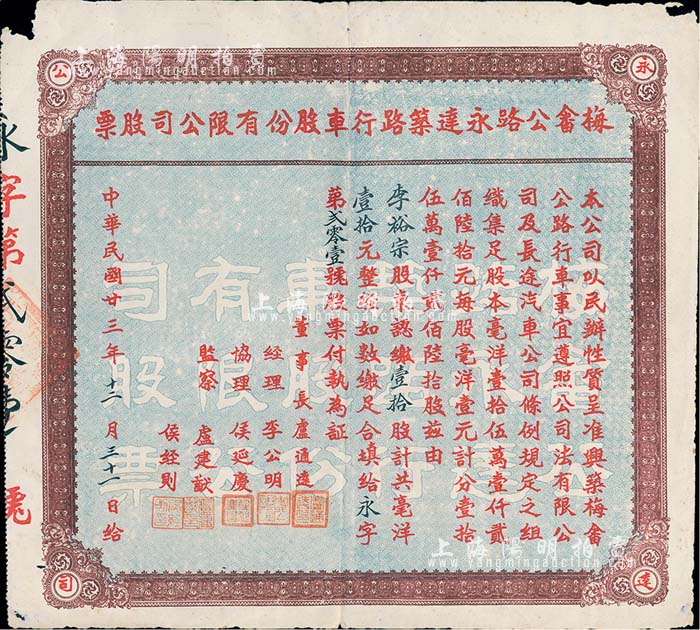 梅畬公路永達築路行車股份有限公司股票
本公司以民辦性質呈准興築梅畬
公路行車事宜遵照公司法有限公
司及長途汽車公司條例規定之組
織集足股本毫洋壹拾伍萬壹仟貳
佰陸拾元每股毫洋壹元計分壹拾
伍萬壹仟貳佰陸拾股茲由
李裕宗股東認繳壹拾股計共毫洋
壹拾元整經如數繳足合填給永字
第弍零壹號股票付執為証
董事長盧通達
經理李公明
協理侯延慶
監察盧建猷
侯經則
中華民國廿三年十二月三十一日給
永字第弍零壹號
永
達
公
司
梅畬公路永達築路行車股份有限公司股票
上海陽明拍賣
www.yangmingauction.com
上海陽明拍賣
www.yangmingauction.com
上海陽明拍賣
www.yangmingauction.com